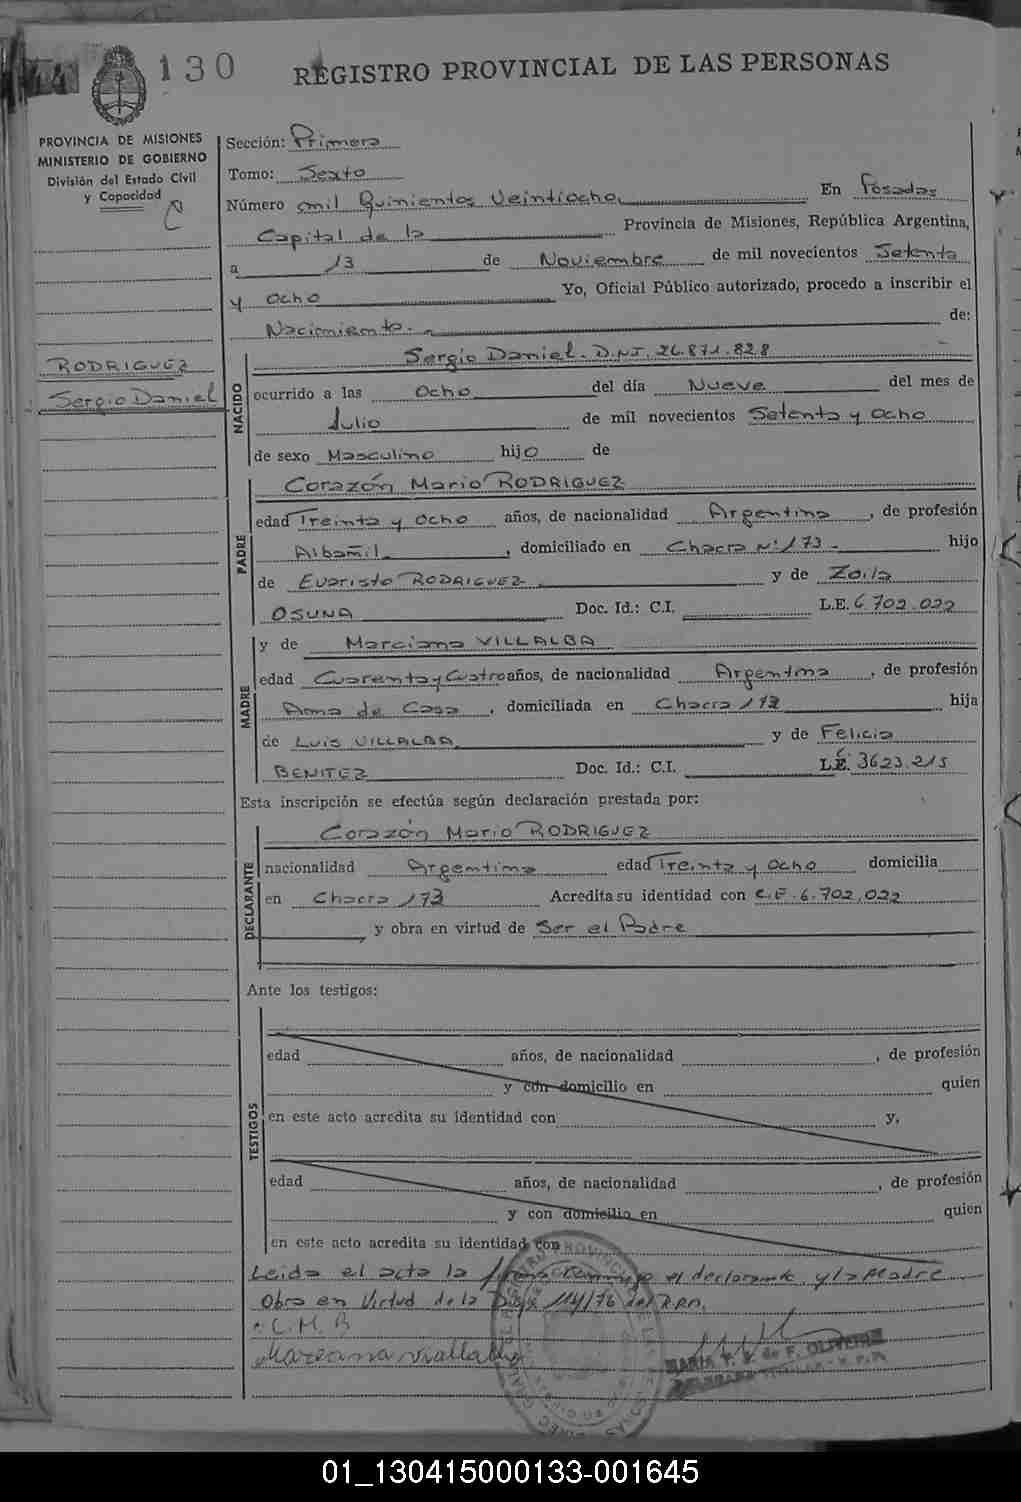 130
REGISTRO PROVINCIAL DE LAS PERSONAS
PROVINCIA DE MISIONES
MINISTERIO DE GOBIERNO
División del Estado Civil
y Capacidad
RODRIGUEZ
Sergio Daniel
Sección: Primera
Tomo: Sexto
Número mil Quinientos Veintiocho En Posadas
Capital de la Provincia de Misiones, República Argentina,
a 13 de Noviembre de mil novecientos Setenta
y ocho Yo, Oficial Público autorizado, procedo a inscribir el
Nacimiento. de:
NACIDO
Sergio Daniel. D.N.I. 26.871.828
ocurrido a las Ocho del día Nueve del mes de
Julio de mil novecientos Setenta y ocho
de sexo Masculino hijo de
PADRE
Corazón Mario RODRIGUEZ
edad Treinta y Ocho años, de nacionalidad Argentina, de profesión
Albañil, domiciliado en Chacra Nº 173 - hijo
de Evaristo RODRIGUEZ y de Zoila
OSUNA Doc. Id.: C.I. L.E. 6.702.022
MADRE
y de Marciana VILLALBA
edad Cuarenta y Cuatro años, de nacionalidad Argentina, de profesión
Ama de Casa, domiciliada en Chacra 173 hija
de Luis VILLALBA y de Felicia
BENITEZ Doc. Id.: C.I. L.C. 3623.215
Esta inscripción se efectúa según declaración prestada por:
DECLARANTE
Corazón Mario RODRIGUEZ
nacionalidad Argentina edad Treinta y ocho domicilia
en Chacra 173 Acredita su identidad con L.E. 6.702.022
, y obra en virtud de Ser el Padre
Ante los testigos:
TESTIGOS
edad años, de nacionalidad , de profesión
y con domicilio en quien
en este acto acredita su identidad con y,
edad años, de nacionalidad , de profesión
y con domicilio en quien
en este acto acredita su identidad con
Leida el acta la firma conmigo el declarante y la Madre
Obra en Virtud de la 114/76 del R.P.P.
C.M.R
Marciana Villalba
MARIA de F. OLIVEIRA
01_130415000133-001645